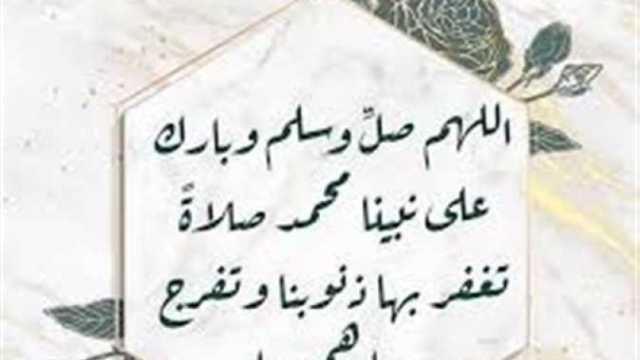 اللهم صلِّ وسلم وبارك
على نبينا محمد صلاةً
تغفر بها ذنوبنا وتفرج